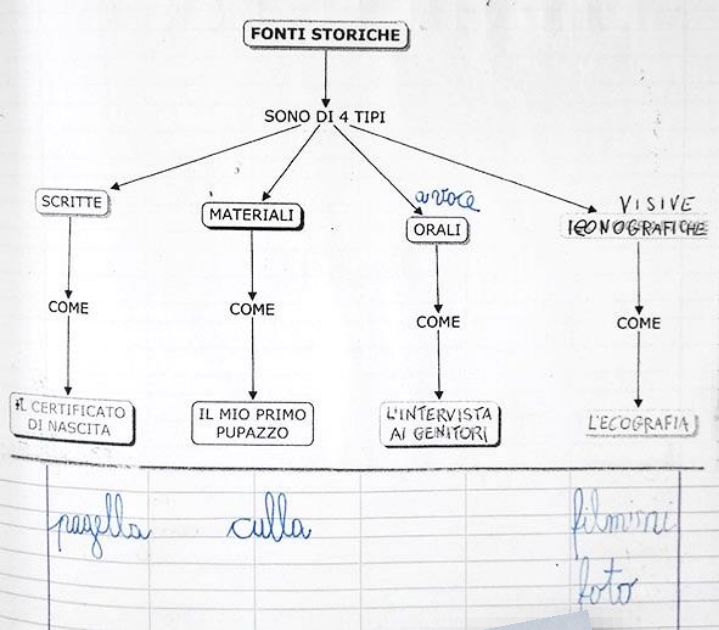 FONTI STORICHE
SONO DI 4 TIPI
SCRITTE
MATERIALI
a voce
ORALI
VISIVE
ICONOGRAFICHE
COME
COME
COME
COME
IL CERTIFICATO
DI NASCITA
IL MIO PRIMO
PUPAZZO
L'INTERVISTA
AI GENITORI
L'ECOGRAFIA
pagella
culla
filmini
foto